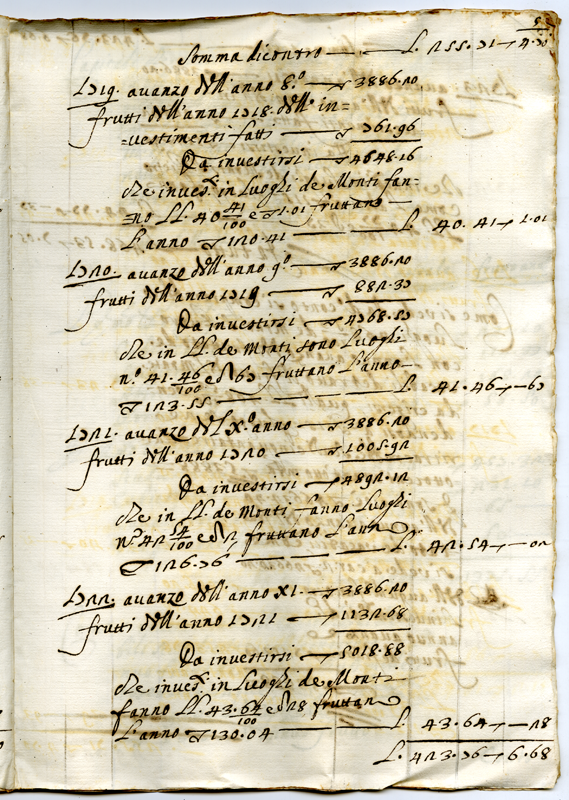 5
Somma dicontro — L. 255.71 — 4.70
1719. avanzo dell'anno 8.º — ▽ 3886.20
frutti dell'anno 1718. dell'in=
=vestimenti fatti — ▽ 761.96
Da investirsi — ▽ 4648.16
che invest.ti in Luoghi de Monti fan=
=no LL. 40 41/100 e ▽ 1.01 fruttano
l'anno ▽ 120.41 — L. 40.41 — 1.01
1720. avanzo dell'anno 9.º — ▽ 3886.20
frutti dell'anno 1719 — ▽ 882.37
Da investirsi — ▽ 4768.57
che in LL. de Monti sono Luoghi
n.º 41.46/100 e ▽ 67 fruttano l'anno
▽ 123.55 — L. 41.46 — 67
1721. avanzo del X.º anno — ▽ 3886.20
frutti dell'anno 1720 — ▽ 1005.92
Da investirsi — ▽ 4892.12
che in LL. de Monti fanno Luoghi
n.º 42 54/100 e ▽ 2 fruttano l'anno
▽ 126.76 — L. 42.54 — 02
1722. avanzo dell'anno XI. — ▽ 3886.20
frutti dell'anno 1721 — ▽ 1132.68
Da investirsi — ▽ 5018.88
che invest.ti in Luoghi de Monti
fanno LL. 43.64/100 e ▽ 28 fruttano
l'anno ▽ 130.04 — L. 43.64 — 28
L. 423.76 — 6.68